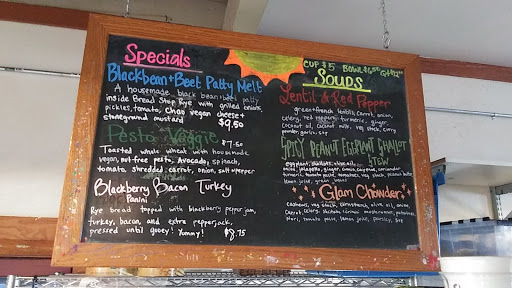 Specials
Blackbean + Beet Patty Melt
A housemade black bean + beet patty
inside Bread Stop Rye with grilled onions,
pickles, tomato, Chao vegan cheese +
stoneground mustard $9.50
Pesto Veggie $7.50
Toasted whole wheat with housemade
vegan, nut-free pesto, Avocado, spinach,
tomato, shredded carrot, onion, salt + pepper
Blackberry Bacon Turkey
Panini
Rye bread topped with blackberry pepper jam,
turkey, bacon, and extra pepperjack,
pressed until gooey! Yummy! $8.75
CUP $5 BOWL
SOUPS
Lentil & Red Pepper
green + french lentils, carrot, onion,
celery, red pepper, turmeric, ginger,
coconut oil, coconut milk, veg stock, curry
powder, garlic,
SPICY PEANUT EGGPLANT SHALLOT
STEW
eggplant, shallots,
jalapeño, ginger, cumin, cayenne, coriander
turmeric, tomato paste, tomatoes, veg stock, peanut butter
lemon juice, green
Glam Chowder
cashews, veg stock, olive oil, onion,
carrot, celery, shiitake, mushrooms, potatoes,
nori, tomato paste, lemon juice, parsley,